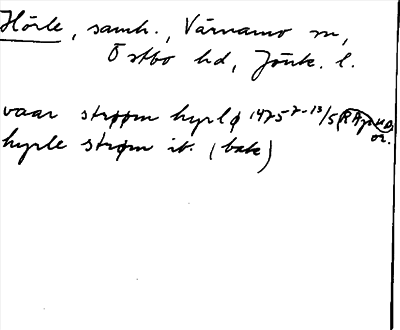 Hörle, samh., Värnamo sn,
Östbo hd, Jönk. l.
vaar strøøm hyrlø 1475 7-13/5 RAp
or.
hyrle strøm ib. (bak)